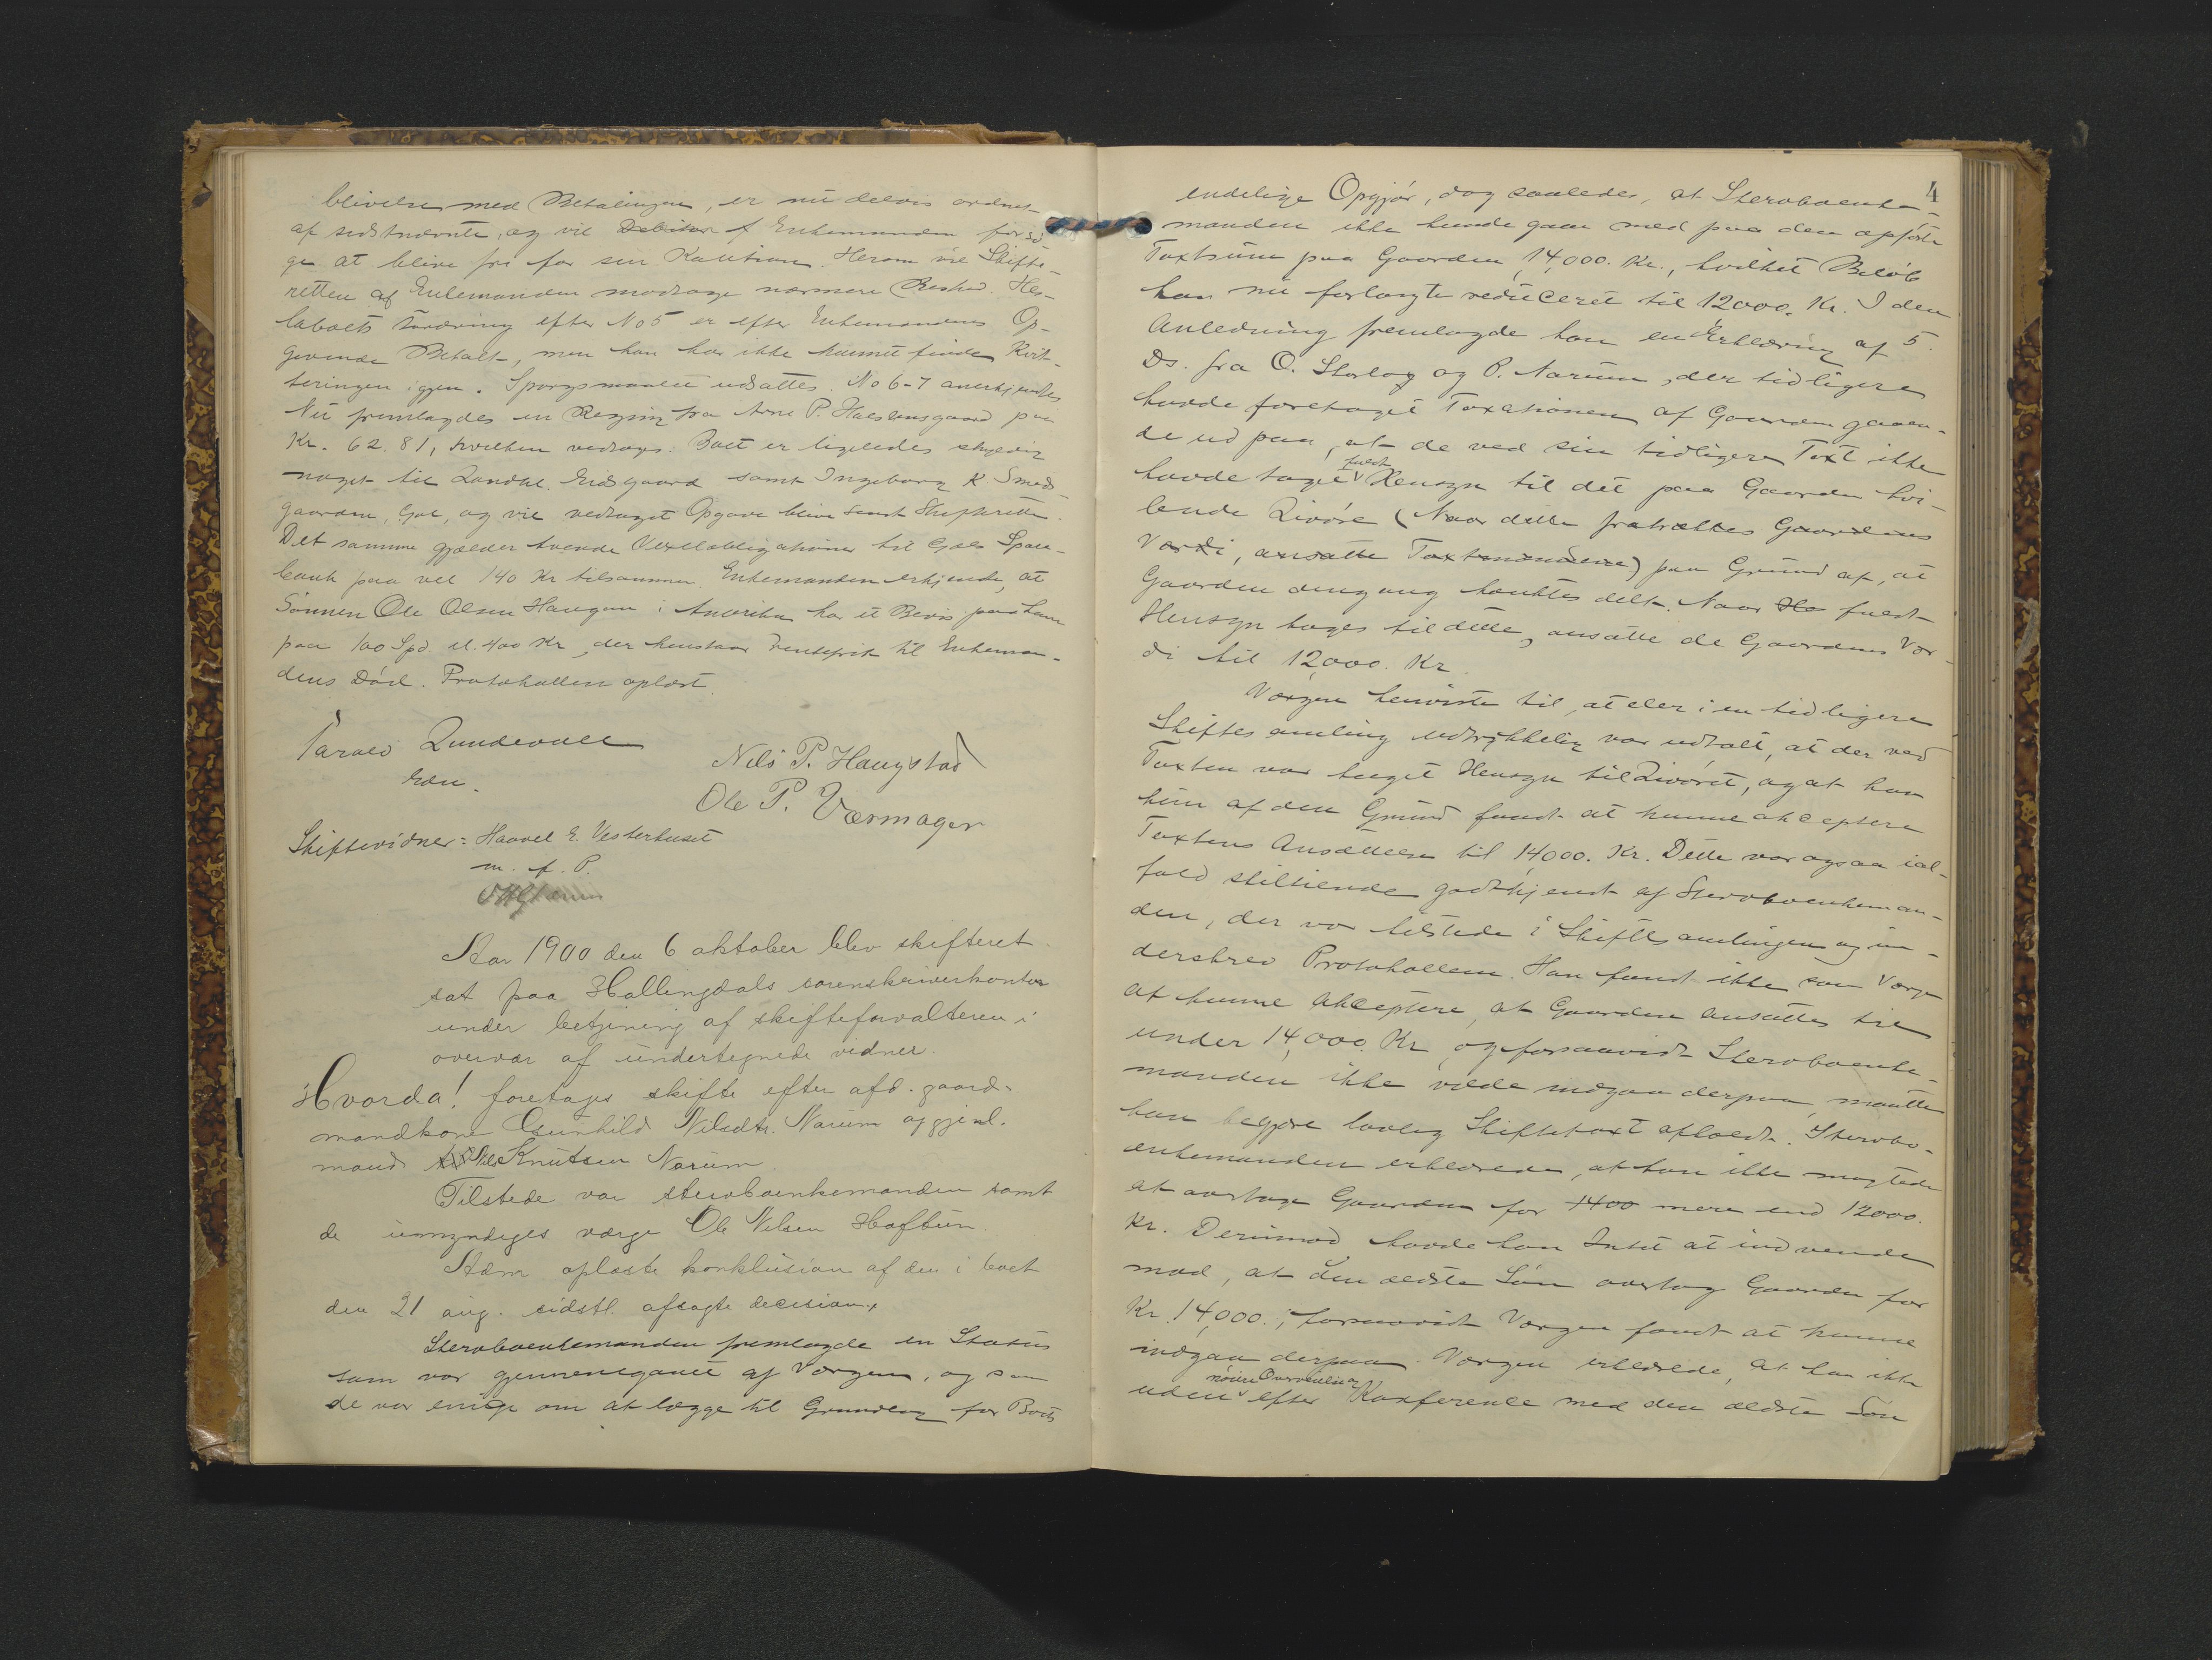 blivelse med Betalingen, er nu delvis ordnet
af sidstnævnte, og vil Debitor f Enkemanden forsø-
ge at blive fri for sin Kaution. Herom vil Skifte-
retten af Enkemanden modtage nærmere Besked. Hes-
labaets Fordring efter No 5 er efter Enkemandens Op-
givende betalt, men han har ikke kunnet finde Kvit-
teringen igjen. Spørgsmaalet udsattes. No 6-7 anerkjendtes
Nu fremlagdes en Regning fra Arne P. Halstensgaard paa
Kr. 62.81, hvilken vedtoges. Boet er ligeledes skyldig
noget til Landhl. Eidsgaard samt Ingeborg K Smed-
gaarden, Gol, og vil vedtaget Opgave blive sendt Skifteretten.
Det samme gjælder tvende Vexelobligationer til Gols Spare-
bank paa vel 140 Kr tilsammen. Enkemanden erkjendte, at
Sønnen Ole Olsen Haugen i Amerika har et Bevis paa ham
paa 100 Spd. el. 400 Kr, der henstaar rentefrit til Enkeman-
dens Død. Protokollen oplæst.
Tarald Lundevall
Edm.
Nils P. Haugstad
Ole P. Værmager
Skiftevidner: Haavel E. Vesterhuset
m. f. P.
Aar 1900 den 6 oktober blev skifteret
sat paa Hallingdals sorenskriverkontor
under betjening af skifteforvalteren i
overvær af undertegnede vidner.
Hvorda! foretoges skifte efter afd. gaard-
mandkone Gunhild Nilsdtr. Narum og gjenl.
mand Nils Knutsen Narum
Tilstede var sterboenkemanden samt
de umyndiges værge Ole Nilsen Hoftun.
Adm oplæste konklusion af den i boet
den 21 aug. sidstl. afsagte decision.
Sterboenkemanden fremlagde en Status
som var gjennemgaaet af Værgen, og som
de var enige om at lægge til Grundlag for Boets
4
endelige Opgjør, dog saaledes, at Sterboenke-
manden ikke kunde gaa med paa den opførte
Taxtsum paa Gaarden 14,000. Kr., hvilket Beløb
han nu forlangte reduceret til 12000. Kr. I den
Anledning fremlagde han en Erklæring af 5.
Ds. fra O. Storlog og P. Narum, der tidligere
havde foretaget Taxationen af Gaarden gaaen-
de ud paa, at de ved sin tidligere Taxt ikke
havde taget fuldt Hensyn til det paa Gaarden hvi-
lende Livøre (Naar dette fratrættes Gaardens
Værdi, ansatte Taxtmændene) paa Grund af, at
Gaarden dengang tænktes delt. Naar Ho fuldt
Hensyn tages til dette, ansatte de Gaardens Vær-
di til 12,000. Kr.
Værgen henviste til, at der i en tidligere
Skiftesamling udtrykkelig var udtalt, at der ved
Taxten var taget Hensyn til Livøret, og at han
kun af den Grund fandt at kunne akceptere
Taxtens Ansættelse til 14,000. Kr. Dette var ogsaa ial-
fald stiltiende godkjendt af Sterboenkeman-
den, der var tilstede i Skiftesamlingen og un-
derskrev Protokollen. Han fandt ikke som Værge
at kunne akceptere, at Gaarden ansattes til
under 14,000. Kr, og forsaavidt Sterboenke-
manden ikke vilde indgaa derpaa, maatte
han begjære lovlig Skiftetaxt afholdt. Sterbo-
enkemanden erklærede, at han ikke magtede
at overtage Gaarden for 1400 mere end 12000.
Kr. Derimod havde han Intet at indvende
mod, at den ældste Søn overtog Gaarden for
Kr. 14,000., forsaavidt Værgen fandt at kunne
indgaa derpaa. Værgen erklærede, at han ikke
uden nøiere Overveielse efter Konference med den ældste Søn